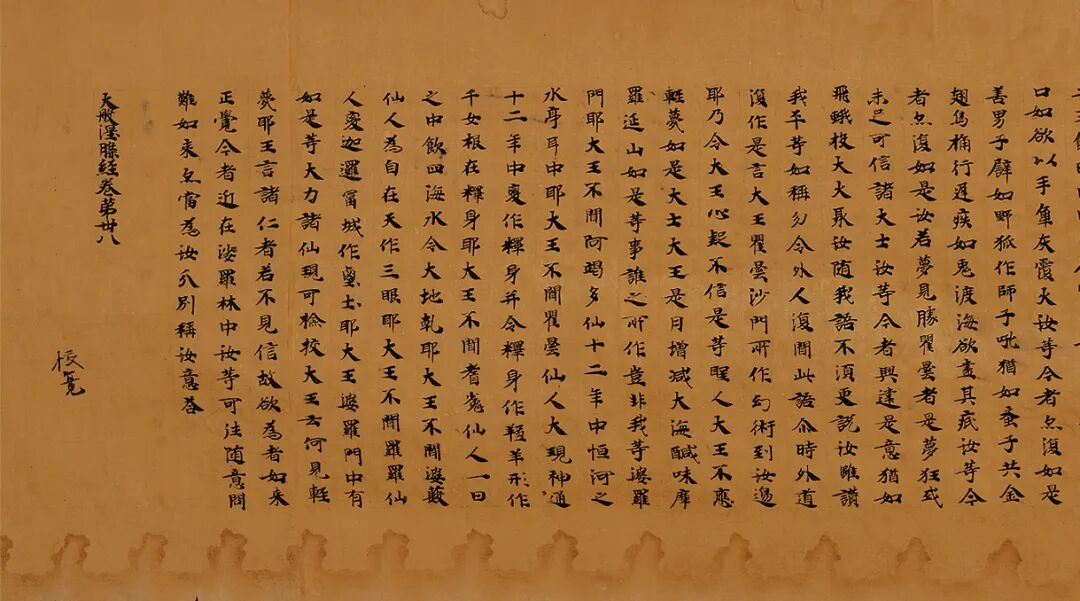 口如欲以手灰覆天汝等今者亦復如是
善男子譬如野狐作師子吼猶如蚤子共金
翅鳥桷行遲疾如兔渡海欲盡其底汝等今
者亦復如是汝若夢見勝瞿曇者是夢狂惑
未足可信諸大士汝等今者興建是意猶如
飛蛾投大火聚汝隨我語不須更說汝雖讚
我平等如稱勿令外人復聞此語尒時外道
復作是言大王瞿曇沙門所作幻術到汝邊
耶乃令大王心疑不信是等聖人大王不應
輕蔑如是大士大王是月增減大海醎味摩
羅延山如是等事誰之所作豈非我等婆羅
門耶大王不聞阿竭多仙十二年中恒河之
水停耳中耶大王不聞瞿曇仙人大現神通
十二年中變作釋身并令釋身作羖羊形作
千女根在釋身耶大王不聞耆仙人一日
之中飲四海水令大地乾耶大王不聞婆藪
仙人為自在天作三眼耶大王不聞羅羅仙
人變迦邏富城作鹵土耶大王婆羅門中有
如是等大力諸仙現可檢挍大王云何見輕
蔑耶王言諸仁者若不見信故欲為者如來
正覺今者近在娑羅林中汝等可往隨意問
難如來亦當為汝分別稱汝意荅
大般涅槃經卷第卅八
校竟